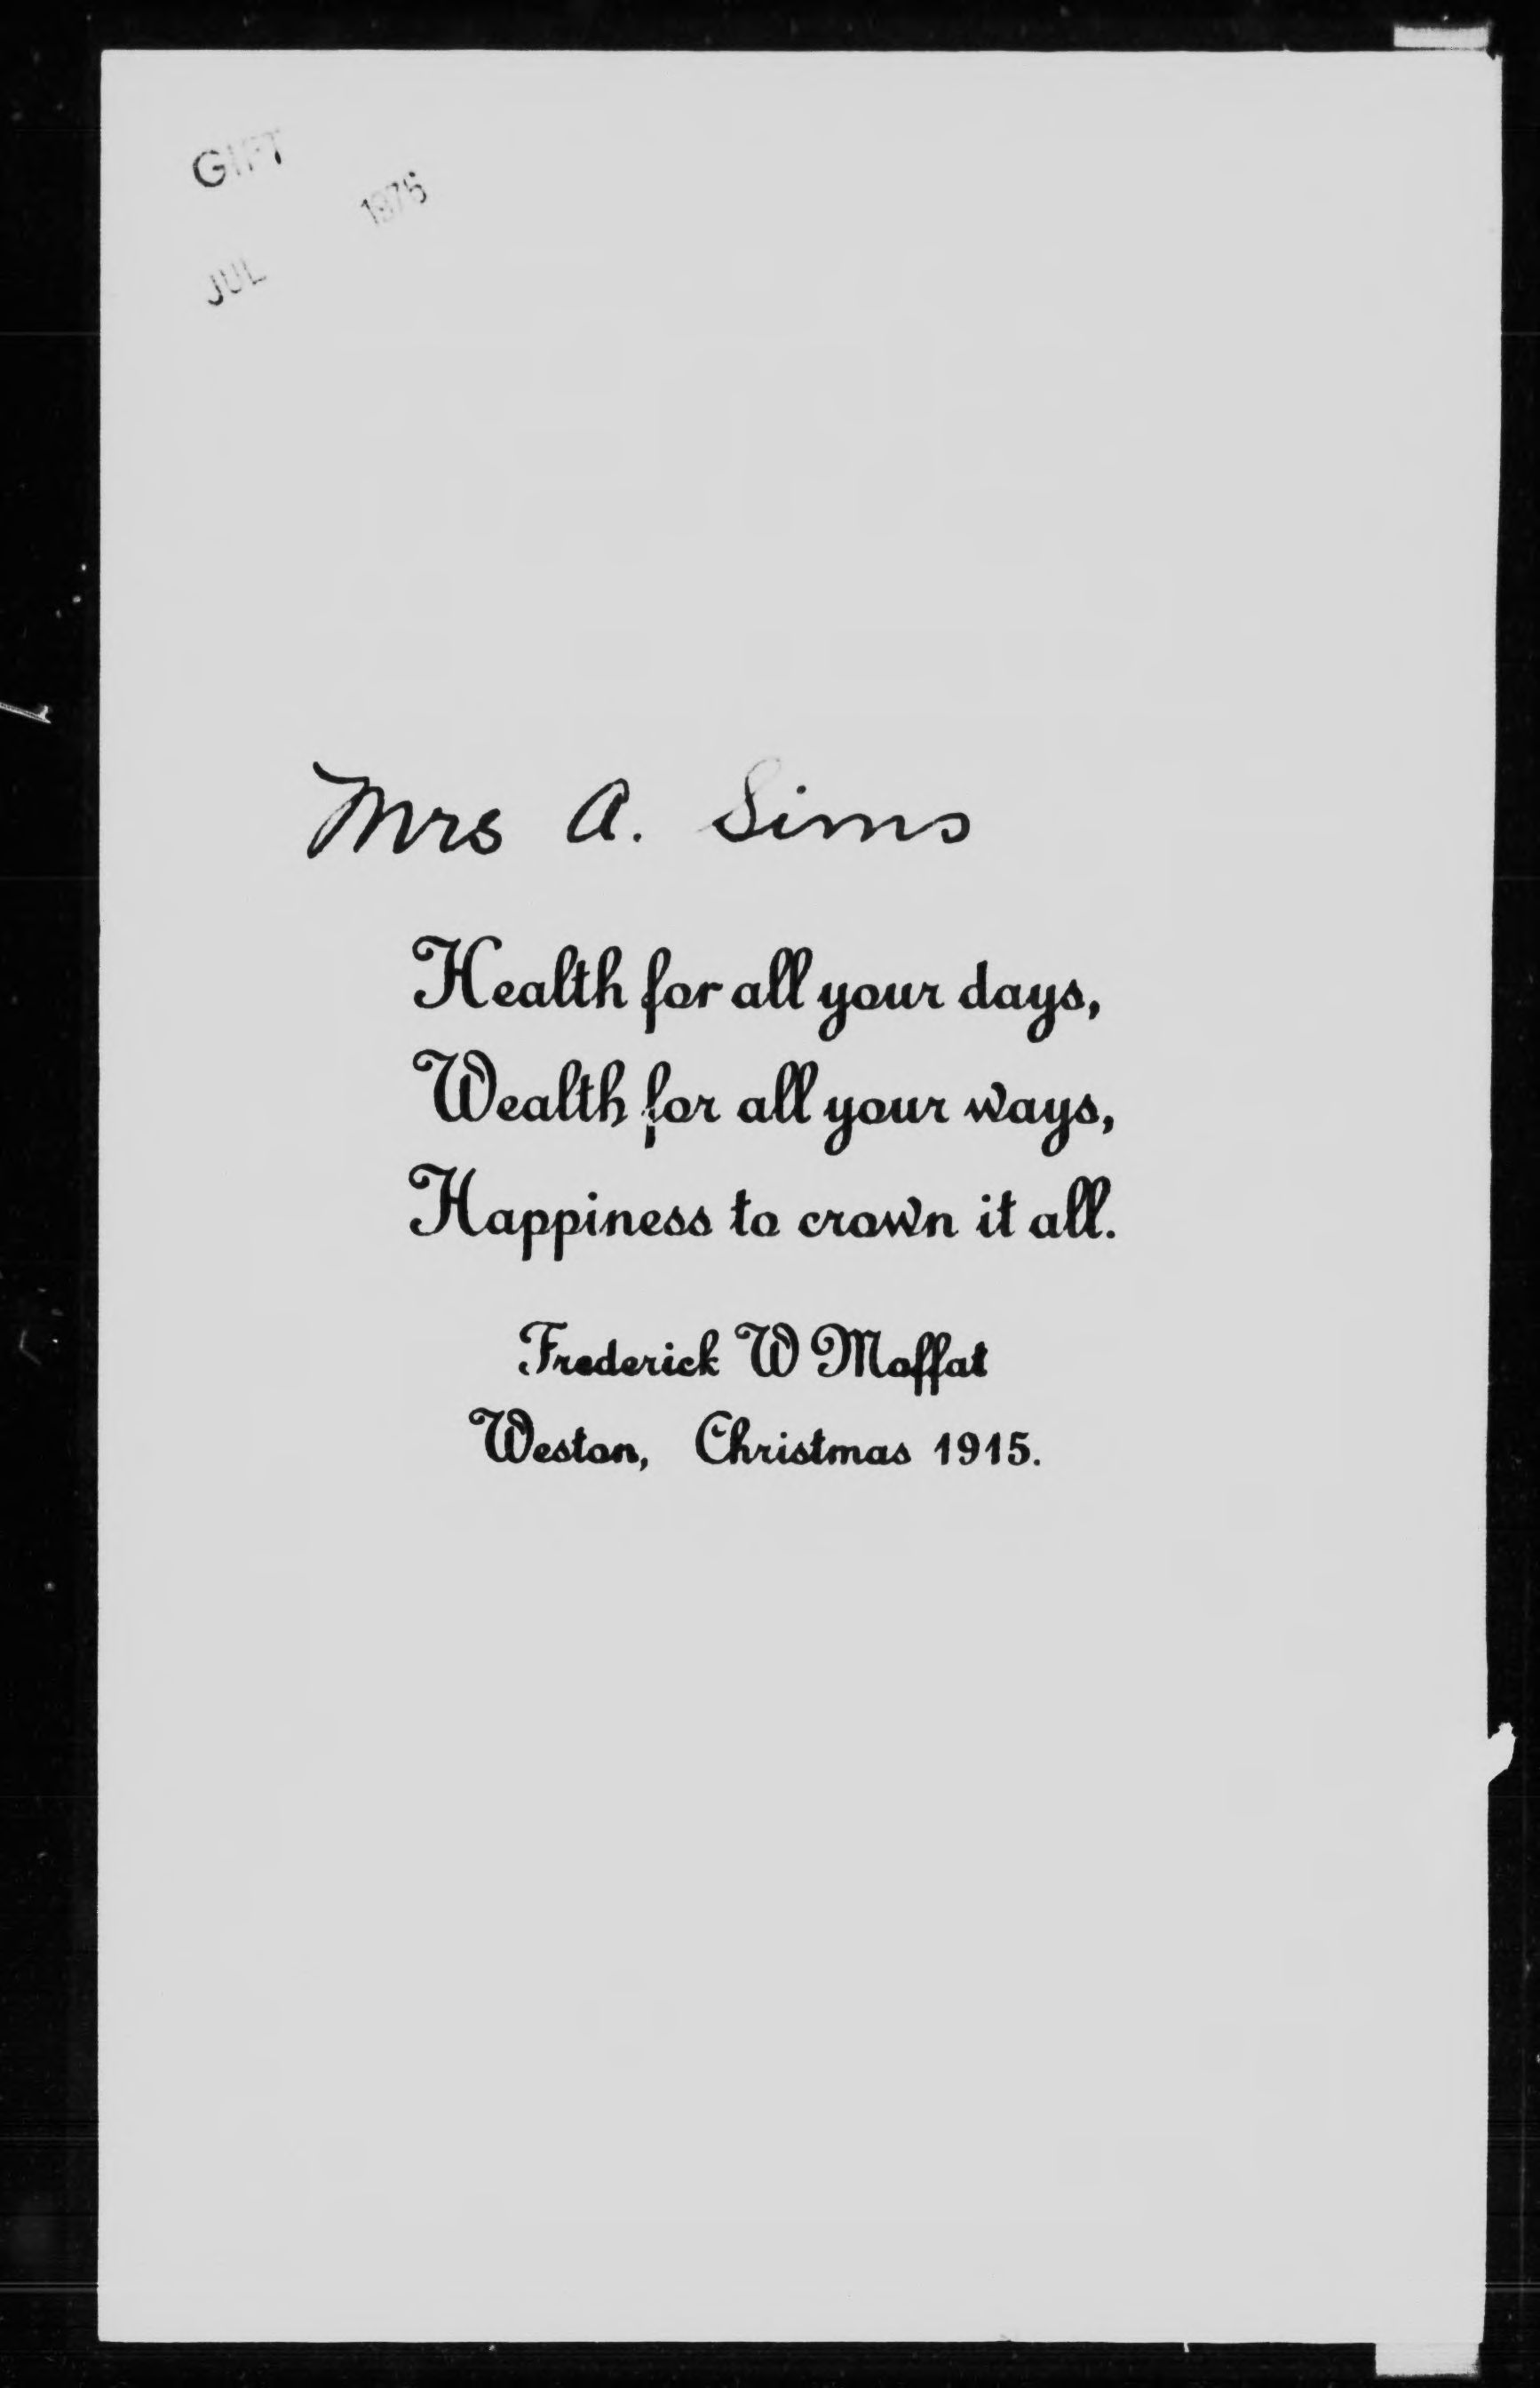 GIFT
1976
JUL
Mrs A. Sims
Health for all your days,
Wealth for all your ways,
Happiness to crown it all.
Frederick W Moffat
Weston, Christmas 1915.